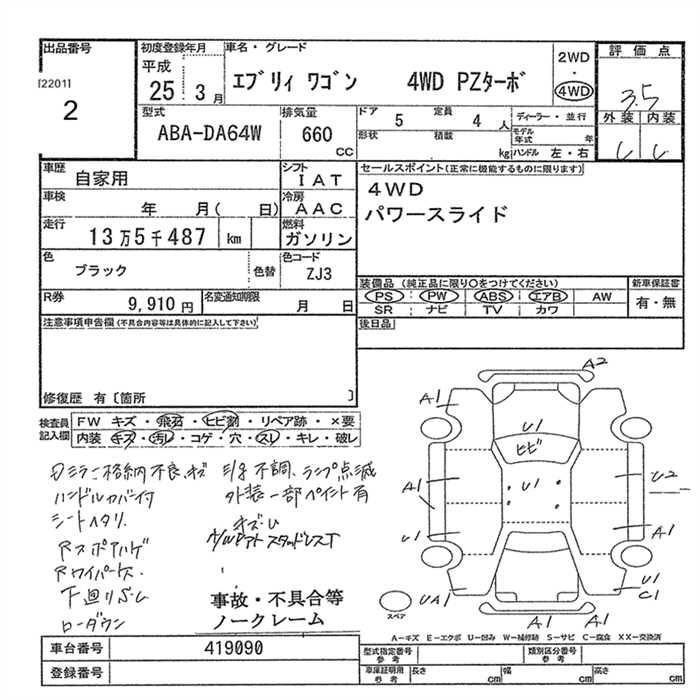 出品番号
[2201]
2
初度登録年月
平成
25年 3月
車名・グレード
エブリィ ワゴン 4WD PZターボ
2WD
・
4WD
評価点
3.5
外装 内装
型式
ABA-DA64W
排気量
660
CC
ドア 5
定員 4人
形状
積載
kg
ディーラー・並行
モデル年式 年
ハンドル 左・右
車歴
自家用
シフト
IAT
車検
年 月( 日)
冷房
AAC
走行
13万5千487 km
燃料
ガソリン
色
ブラック
色替
色コード
ZJ3
R券
9,910円
名変通知期限
月 日
セールスポイント(正常に機能するものに限ります)
4WD
パワースライド
装備品(純正品に限り○をつけてください)
PS PW ABS エアB AW
SR ナビ TV カワ
新車保証書
有・無
後日品
注意事項申告欄(不具合内容等は具体的に記入して下さい)
修復歴 有〔箇所 〕
検査員記入欄
FW キズ・飛石・ヒビ割・リペア跡・×要
内装 キズ・汚レ・コゲ・穴・スレ・キレ・破レ
ミラー格納不良、キズ
ランプ点滅
ハンドルカバー付
外装一部ペイント有
シートヘタリ
下廻りSCL
ローダウン
事故・不具合等
ノークレーム
A2
A1
U1
ヒビ
U1
A1
U1
U2
A1
U1
C1
UA1
A1
A1
スペア
A-キズ E-エクボ U-凹み W-補修跡 S-サビ C-腐食 XX-交換済
車台番号 419090
登録番号
型式指定番号
参考
類別区分番号
参考
車庫証明用
参考
長さ cm
幅 cm
高さ cm